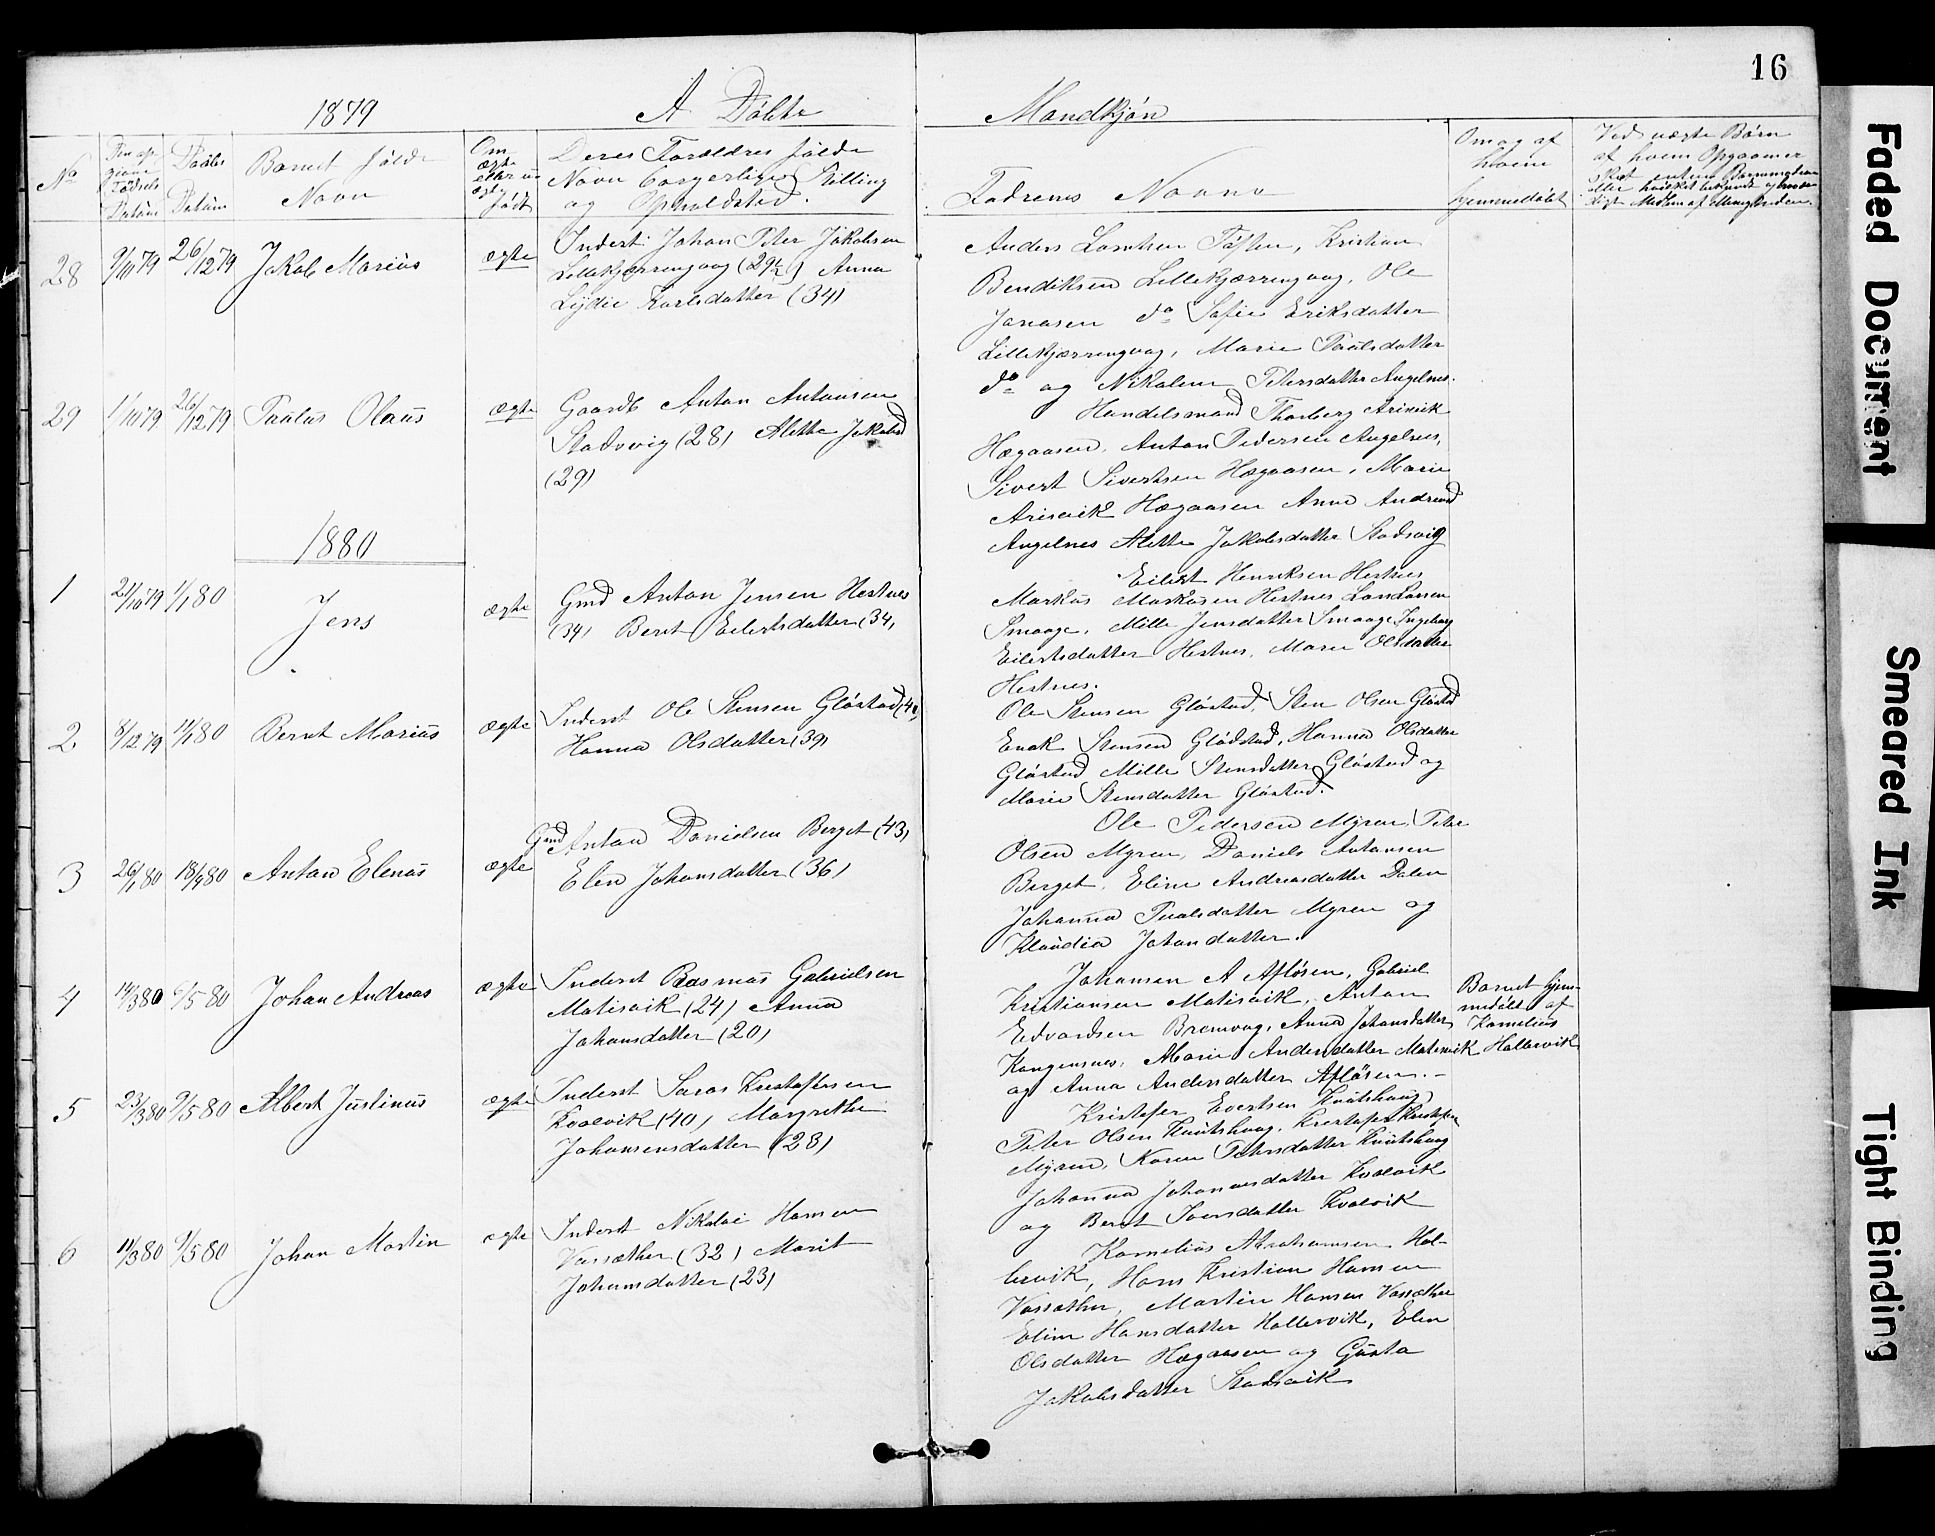 16
1879 A Døbte Mandkjøn
No
Datum
Døbes Datum
Barnets fulde Navn
Om ægte eller u ægte født
Deres Forældres fulde Navn borgerlige Stilling og Opholdsted.
Fadrenes Navne
Om og af hvem hjemmedøbt
Ved uægte Børn af hvem Opgaven er
28 9/10 79 26/12 79 Jakob Marius ægte
Inderst Johan Peter Jakobsen
Lillekjærringvaag (29½) Anna
Lydie Karlsdatter (34)
Anders Lambrn Tøften, Kristian
Bendiksen Lillekjærringvaag, Ole
Jonasen do Sofie Eriksdatter
Lillekjærringvag, Marie Paulsdatter
do og Nikoline Petersdatter Angelnes.
29 1/10 79 26/12 79 Paulus Olaus ægte
Gaardb Anton Antonsen
Stadsvig (28) Alette Jakobsd
(29)
Handelsmand Thorberg Arisvik
Hægaasen, Anton Pedersen Angelnes,
Sivert Sivertsen Hægaasen, Marie
Arisvik Hægaasen Anne Andreasd
Angelnes Alette Jakobsdatter Stadsvig
1880
1 21/10 79 1/1 80 Jens ægte
Gmd Anton Jensen Hestnes
(34) Berit Eilertsdatter (34)
Eilert Henriksen Hestnes
Markus Markusen Hestnes Lars Larsen
Smaage, Mille Jensdatter Smaage Ingeborg
Eilertsdatter Hestnes, Marie Olsdatter
Hestnes.
2 8/12 79 11/1 80 Bernt Marius ægte
Inderst Ole Stensen Gløstad (40)
Hanna Olsdatter (39)
Ole Stensen Gløstad, Sten Olsen Gløstad
Enok Stensen Glødstad, Hanna Olsdatter
Gløstad Mille Stensdatter Gløstad og
Marie Stensdatter Gløstad.
3 26/1 80 18/4 80 Anton Elenus ægte
Gmd Anton Danielsen Berget (43)
Elen Johansdatter (36)
Ole Pedersen Myren, Peter
Olsen Myren, Daniels Antonsen
Berget, Eline Andreasdatter Dalen
Johanna Paulsdatter Myren og
Klaudia Johandatter.
4 14/3 80 9/5 80 Johan Andreas ægte
Inderst Rasmus Gabrielsen
Matisvik (24) Anna
Johansdatter (20)
Johansen A Afløsen, Gabriel
Kristiansen Matisvik, Anton
Edvardsen Bremvag, Anna Johansdatter
Kongensnes, Marie Andersdatter Matisvik
og Anna Andersdatter Afløsen.
Barnet hjem-
medøbt af
Kornelius
Hallervik
5 23/3 80 9/5 80 Albert Justinus ægte
Inderst Kristofersen
Kvalvik (40) Margrethe
Johannesdatter (28)
Kristofer Evertsen Knutshaug
Peter Olsen Knutshaug, Kristofer Kristofersen
Myren, Karen Petersdatter Knutshaug
Johanna Johannesdatter Kvalvik
og Berit Iversdatter Kvalvik
6 11/3 80 9/5 80 Johan Martin ægte
Inderst Nikolai Hansen
Vassæther (32) Marit
Johansdatter (23)
Kornelius Abrahamsen Hal-
lervik, Hans Kristian Hansen
Vassæther, Martin Hansen Vassæther
Eline Hansdatter Hallervik, Elen
Olsdatter Hægaasen og Gusta
Jakobsdatter Stadsvik
Faded Document
Smeared Ink
Tight Binding